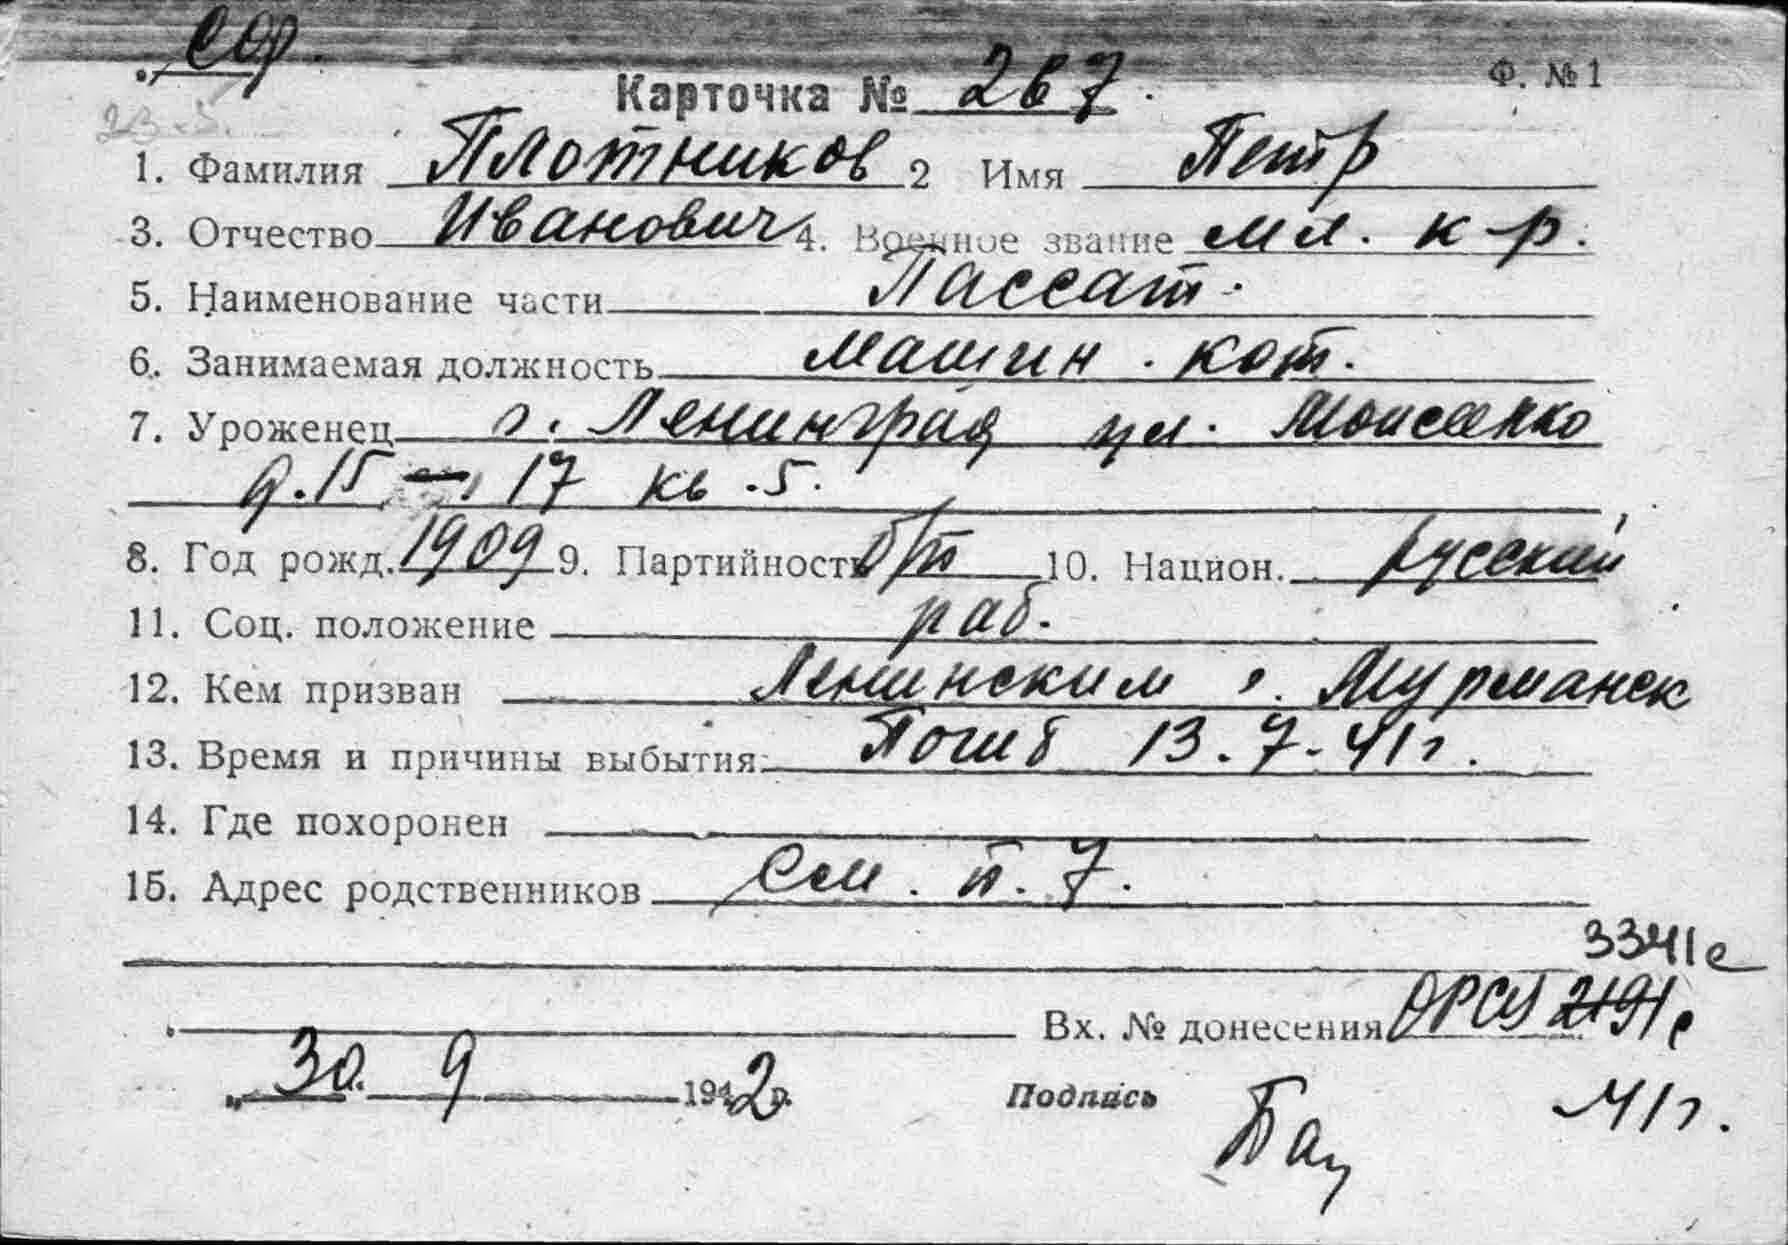 Сор.
23.5.
Карточка № 267. Ф. №1
1. Фамилия Плотников 2 Имя Петр
3. Отчество Иванович 4. Военное звание мл. к-р.
5. Наименование части Пассат.
6. Занимаемая должность машин. кот.
7. Уроженец г. Ленинград ул. Моисеенко
д. 15 – 17 кв. 5.
8. Год рожд. 1909 9. Партийность б/п 10. Национ. русский
11. Соц. положение раб.
12. Кем призван Ленинским г. Мурманск
13. Время и причины выбытия: Погиб 13.7.41г.
14. Где похоронен
15. Адрес родственников См. п. 7.
3341с
Вх. № донесения 2191с
"30. 9 1942г. Подпись 41г.